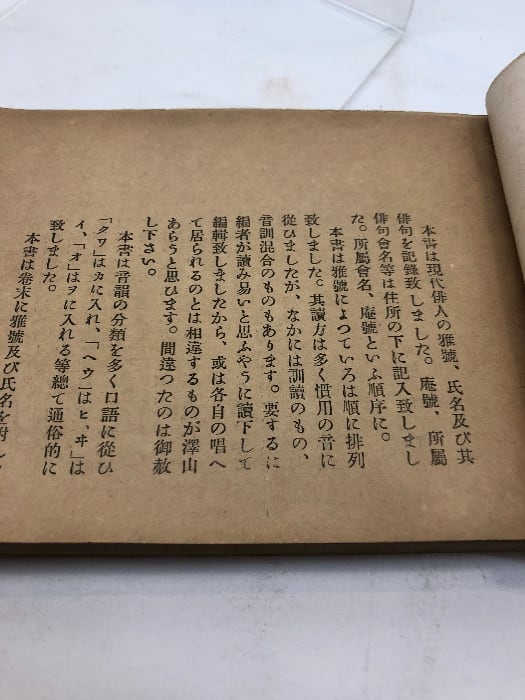 本書は現代俳人の雅號、氏名及び其
俳句を記録致しました。庵號、所屬
俳句會名等は住所の下に記入致しまし
た。所屬會名、庵號といふ順序に。
本書は雅號によつていろは順に排列
致しました。其讀方は多く慣用の音に
從ひましたが、なかには訓讀のもの、
音訓混合のものもあります。要するに
編者が讀み易いと思ふやうに讀下して
編輯致しましたから、或は各自の唱へ
て居られるのとは相違するものが澤山
あらうと思ひます。間違つたのは御赦
し下さい。
本書は音韻の分類を多く口語に從ひ
「クワ」はカに入れ、「ヘウ」はヒ、ヰ」は
イ、「オ」はヲに入れる等總て通俗的に
致しました。
本書は卷末に雅號及び氏名を對し